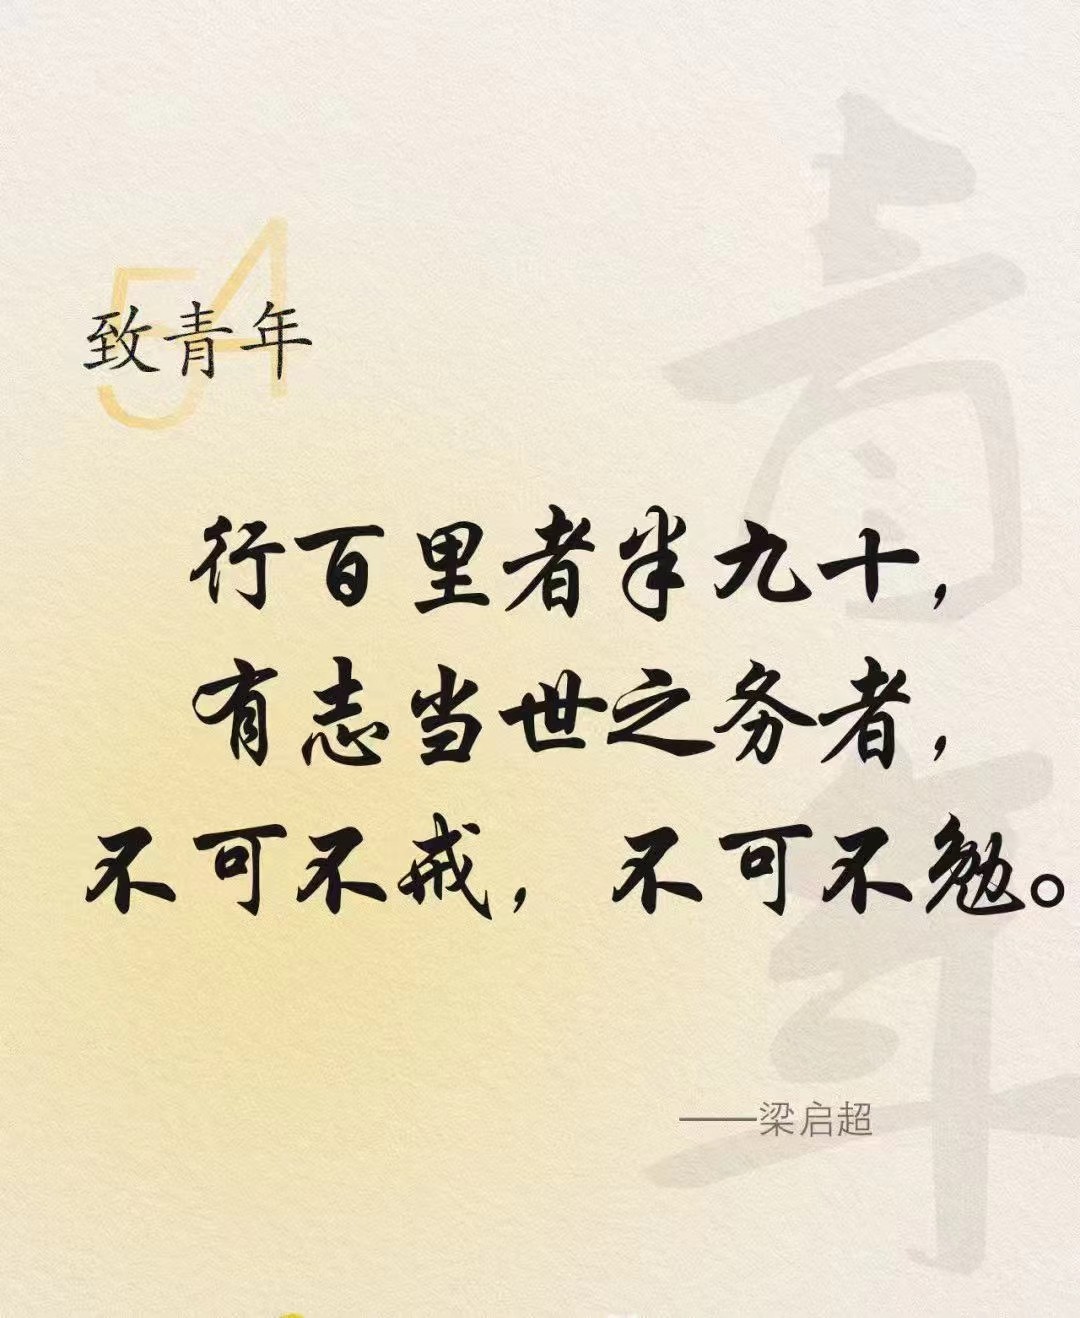 54
致青年
行百里者半九十，
有志当世之务者，
不可不戒，不可不勉。
——梁启超
青年